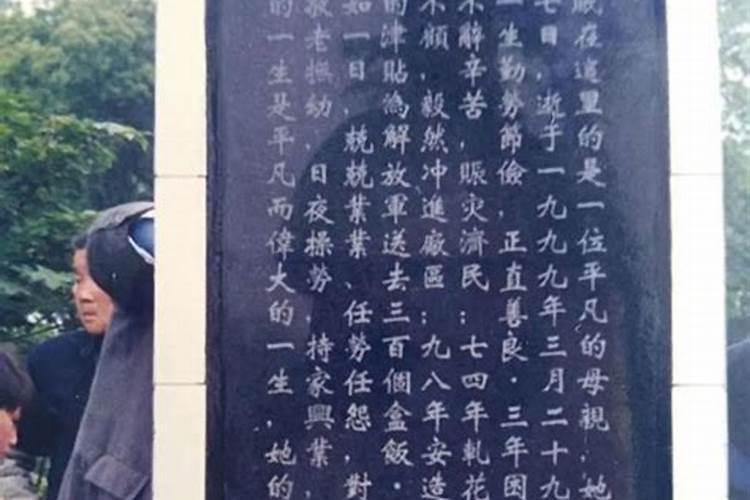 在這里的是一位平凡的母親，她
七日，逝于一九九九年三月二十九
一生勤勞節儉，正直善良．三年困
不辭辛苦，賑灾濟民；七四年軋花
不顧，毅然冲進廠區；九八年安造
的津貼為解放軍送去三百個盒飯．
如一日，兢兢業業、任勞任怨，對
敬老撫幼，日夜操勞，持家興業，
的一生是平凡而偉大的一生，她的